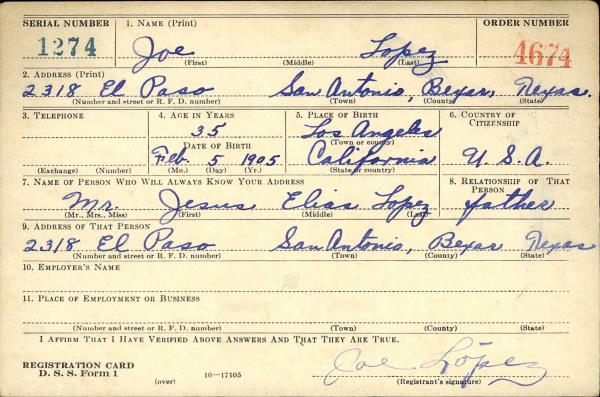 SERIAL NUMBER 1. NAME (Print) ORDER NUMBER
1274 Joe Lopez 4674
(First) (Middle) (Last)
2. ADDRESS (Print)
2318 El Paso San Antonio, Bexar, Texas.
(Number and street or R. F. D. number) (Town) (County) (State)
3. TELEPHONE 4. AGE IN YEARS 5. PLACE OF BIRTH 6. COUNTRY OF CITIZENSHIP
35 Los Angeles
(Town or county)
DATE OF BIRTH
Feb. 5 1905 California U.S.A.
(Exchange) (Number) (Mo.) (Day) (Yr.) (State or country)
7. NAME OF PERSON WHO WILL ALWAYS KNOW YOUR ADDRESS 8. RELATIONSHIP OF THAT PERSON
Mr. Jesus Elias Lopez father
(Mr., Mrs., Miss) (First) (Middle) (Last)
9. ADDRESS OF THAT PERSON
2318 El Paso San Antonio, Bexar Texas
(Number and street or R. F. D. number) (Town) (County) (State)
10. EMPLOYER'S NAME
11. PLACE OF EMPLOYMENT OR BUSINESS
(Number and street or R. F. D. number) (Town) (County) (State)
I AFFIRM THAT I HAVE VERIFIED ABOVE ANSWERS AND THAT THEY ARE TRUE.
REGISTRATION CARD
D. S. S. Form 1 (over) 16—17105 Joe López
(Registrant's signature)